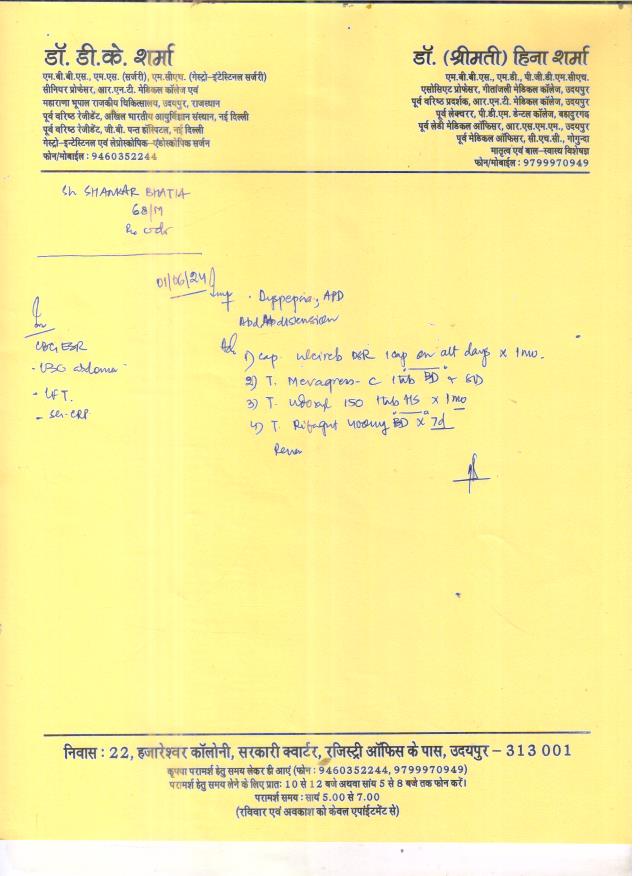 डॉ. डी.के. शर्मा
एम.बी.बी.एस., एम.एस. (सर्जरी), एम.सीएच. (गेस्ट्रो-इंटेस्टिनल सर्जरी)
सीनियर प्रोफेसर, आर.एन.टी. मेडिकल कॉलेज एवं
महाराणा भूपाल राजकीय चिकित्सालय, उदयपुर, राजस्थान
पूर्व वरिष्ठ रेजीडेंट, अखिल भारतीय आयुर्विज्ञान संस्थान, नई दिल्ली
पूर्व वरिष्ठ रेजीडेंट, जी.बी. पन्त हॉस्पिटल, नई दिल्ली
गेस्ट्रो-इन्टेस्टिनल एवं लेप्रोस्कोपिक-एंडोस्कोपिक सर्जन
फोन/मोबाईल : 9460352244
डॉ. (श्रीमती) हिना शर्मा
एम.बी.बी.एस., एम.डी., पी.जी.डी.एम.सीएच.
एसोसिएट प्रोफेसर, गीतांजली मेडिकल कॉलेज, उदयपुर
पूर्व वरिष्ठ प्रदर्शक, आर.एन.टी. मेडिकल कॉलेज, उदयपुर
पूर्व लेक्चरर, पी.डी.एम. डेन्टल कॉलेज, बहादुरगढ़
पूर्व लेडी मेडिकल ऑफिसर, आर.एस.एम.एम., उदयपुर
पूर्व मेडिकल ऑफिसर, सी.एच.सी., गोगुन्दा
मातृत्व एवं बाल-स्वास्थ्य विशेषज्ञ
फोन/मोबाईल : 9799970949
Sh. SHANKAR BHATIA
68/M
01/06/24 Imp · Dyspepsia, APD
Abd distension
Inv
CBC, ESR
- USG abdomen
- LFT.
- Ser-CRP
Adv 1) Cap. DSR 1 cap on alt days x 1mo.
2) T. C 1 tab BD
3) T. 150 1 tab HS x 1mo
4) T. 400mg BD x 7d
निवास : 22, हजारेश्वर कॉलोनी, सरकारी क्वार्टर, रजिस्ट्री ऑफिस के पास, उदयपुर – 313 001
कृपया परामर्श हेतु समय लेकर ही आएं (फोन : 9460352244, 9799970949)
परामर्श हेतु समय लेने के लिए प्रातः 10 से 12 बजे अथवा सांय 5 से 8 बजे तक फोन करें।
परामर्श समय : सायं 5.00 से 7.00
(रविवार एवं अवकाश को केवल एपांईटमेंट से)